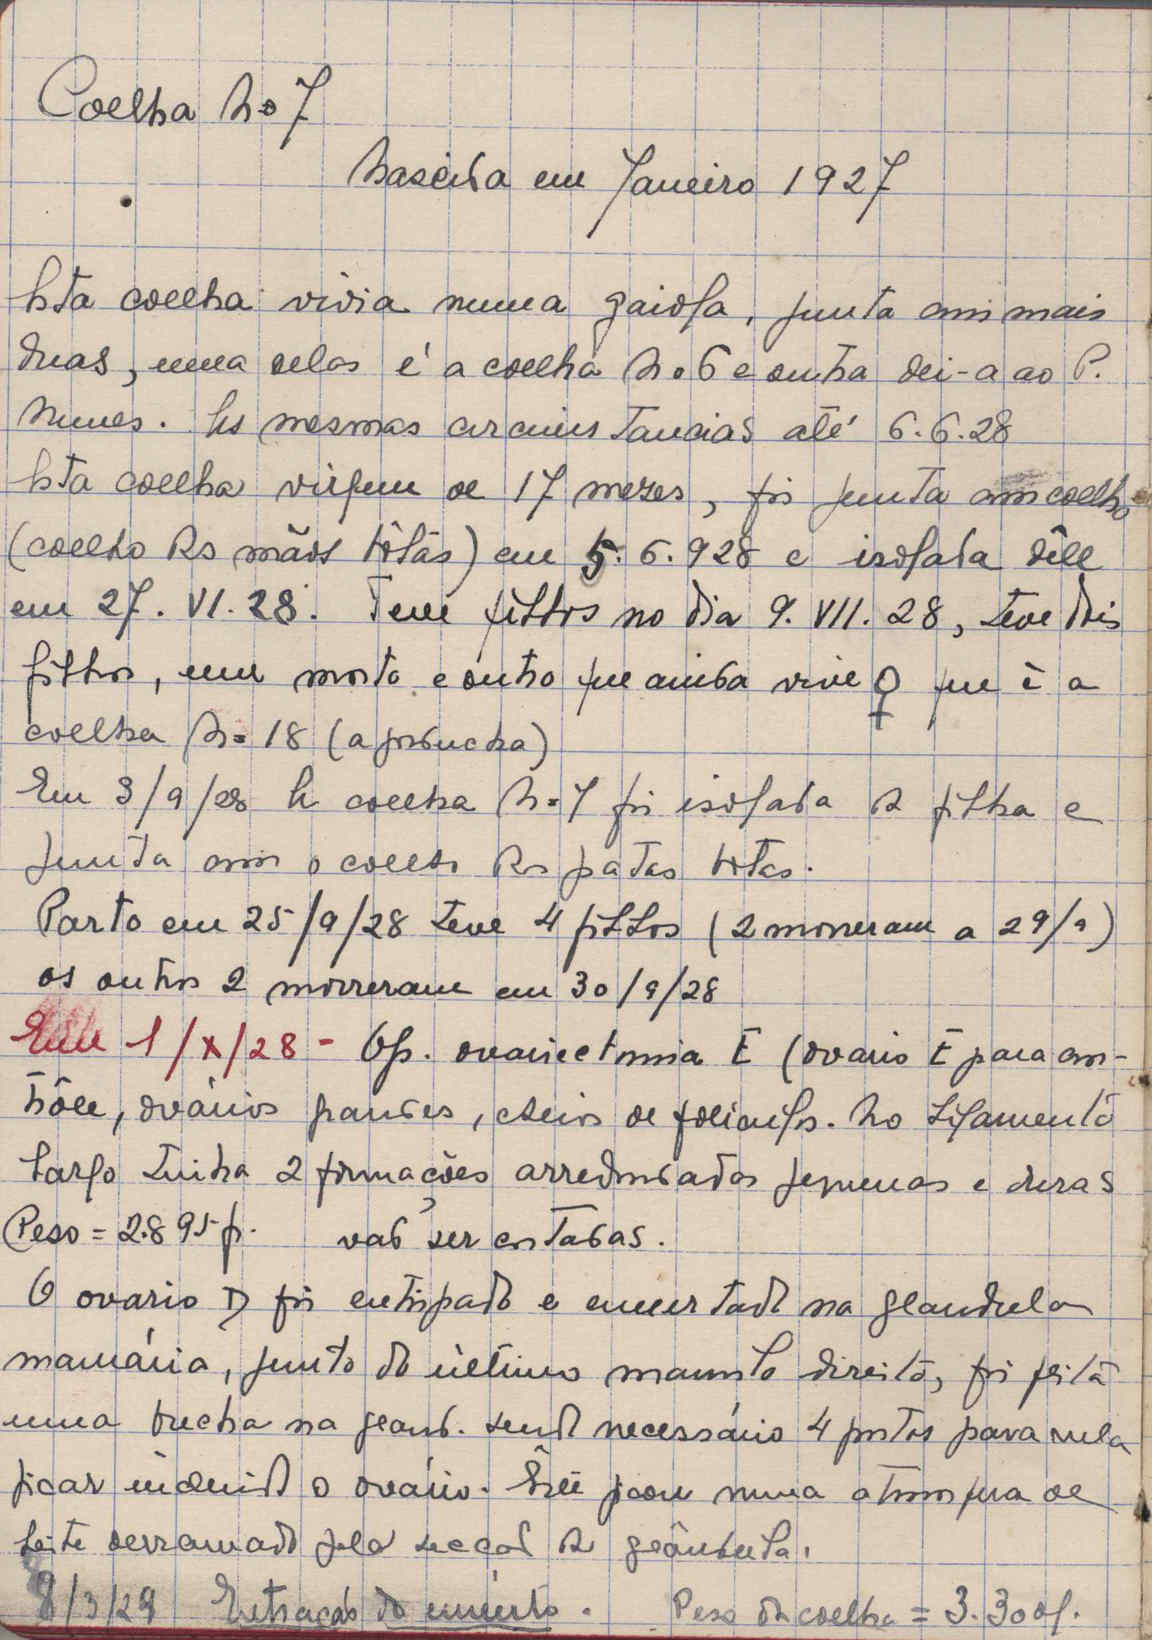 Coelha Nº 7
Nascida em Janeiro 1927
Esta coelha vivia numa gaiola, junta com mais
duas, uma delas é a coelha Nº 6 e outra dei-a ao P.
Nunes. As mesmas circunstancias até 6.6.28
Esta coelha virgem de 17 mezes, foi junta com coelho
(coelho das mãos tortas) em 5.6.928 e isolada dêle
em 27. VI. 28. Teve filhos no dia 9. VII. 28, teve dois
filhos, um morto e outro que ainda vive ♀ que é a
coelha Nº 18 (a gorducha)
Em 3/9/28 A coelha Nº 7 foi isolada da filha e
junta com o coelho das patas tortas.
Parto em 25/9/28 teve 4 filhos (2 morreram a 29/9)
os outros 2 morreram em 30/9/28
Em 1/X/28 - Op. ovariectomia E (ovario E para con-
trôle, ovários grandes, cheios de foliculos. No ligamento
largo tinha 2 formações arredondadas pequenas e duras
Peso = 2.895 g. vão ser cortadas.
O ovario D foi extirpado e enxertado na glandula
mamária, junto do último mamilo direito, foi feita
uma brecha na gland. sendo necessário 4 pontos para nela
ficar incluido o ovário. Êste ficou numa atmosfera de
leite derramado pela secção da glândula.
8/3/29 Extracção do enxerto. Peso da coelha = 3.300 g.